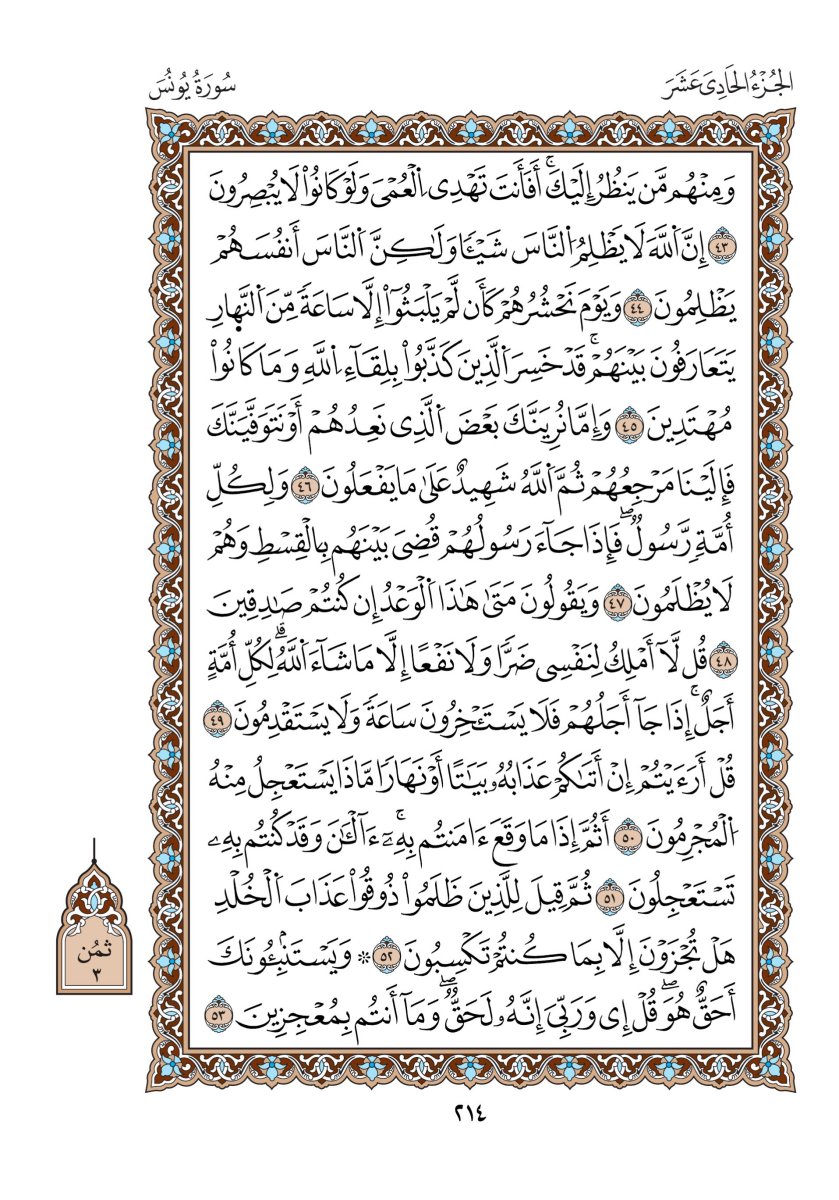 الجُزْءُ الحَادِى عَشَرَ
سُورَةُ يُونُسَ
وَمِنْهُم مَّن يَنظُرُ إِلَيْكَۚ أَفَأَنتَ تَهْدِى اِ۬لْعُمْىَ وَلَوْ كَانُوا۟ لَا يُبْصِرُونَ
٤٣ إِنَّ اَ۬للَّهَ لَا يَظْلِمُ اُ۬لنَّاسَ شَيْـًٔا وَلَٰكِنَّ اَ۬لنَّاسَ أَنفُسَهُمْ
يَظْلِمُونَ ٤٤ وَيَوْمَ نَحْشُرُهُمْ كَأَن لَّمْ يَلْبَثُوٓا۟ إِلَّا سَاعَةً مِّنَ اَ۬لنَّه۪ارِ
يَتَعَارَفُونَ بَيْنَهُمْۚ قَدْ خَسِرَ اَ۬لَّذِينَ كَذَّبُوا۟ بِلِقَآءِ اِ۬للَّهِ وَمَا كَانُوا۟
مُهْتَدِينَ ٤٥ وَإِمَّا نُرِيَنَّكَ بَعْضَ اَ۬لَّذِى نَعِدُهُمْ أَوْ نَتَوَفَّيَنَّكَ
فَإِلَيْنَا مَرْجِعُهُمْ ثُمَّ اَ۬للَّهُ شَهِيدٌ عَلَىٰ مَا يَفْعَلُونَ ٤٦ وَلِكُلِّ
أُمَّةٍ رَّسُولٌۖ فَإِذَا جَآءَ رَسُولُهُمْ قُضِىَ بَيْنَهُم بِالْقِسْطِ وَهُمْ
لَا يُظْلَمُونَ ٤٧ وَيَقُولُونَ مَتَىٰ هَٰذَا اَ۬لْوَعْدُ إِن كُنتُمْ صَٰدِقِينَ
٤٨ قُل لَّآ أَمْلِكُ لِنَفْسِى ضَرًّا وَلَا نَفْعًا إِلَّا مَا شَآءَ اَ۬للَّهُۗ لِكُلِّ أُمَّةٍ
أَجَلٌۚ إِذَا جَآ أَجَلُهُمْ فَلَا يَسْتَـْٔخِرُونَ سَاعَةً وَلَا يَسْتَقْدِمُونَ ٤٩
قُلْ أَرَءَيْتُمْ إِنْ أَتَىٰكُمْ عَذَابُهُۥ بَيَٰتًا أَوْ نَهَارًا مَّاذَا يَسْتَعْجِلُ مِنْهُ
اُ۬لْمُجْرِمُونَ ٥٠ أَثُمَّ إِذَا مَا وَقَعَ ءَامَنتُم بِهِۦٓۚ ءَآلْـَٰٔنَ وَقَدْ كُنتُم بِهِۦ
تَسْتَعْجِلُونَ ٥١ ثُمَّ قِيلَ لِلَّذِينَ ظَلَمُوا۟ ذُوقُوا۟ عَذَابَ اَ۬لْخُلْدِ
هَلْ تُجْزَوْنَ إِلَّا بِمَا كُنتُمْ تَكْسِبُونَ ٥٢ * وَيَسْتَنۢبِـُٔونَكَ
أَحَقٌّ هُوَۖ قُلْ إِى وَرَبِّىَ إِنَّهُۥ لَحَقٌّۖ وَمَآ أَنتُم بِمُعْجِزِينَ ٥٣
ثُمُن
٣
٢١٤